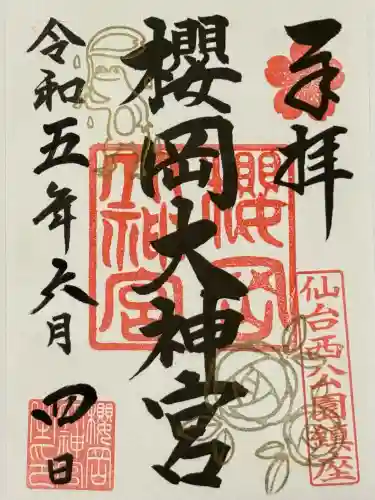 奉拝
仙台西公園鎮座
櫻岡大神宮
櫻岡大神宮
令和五年六月四日
櫻岡
神宮